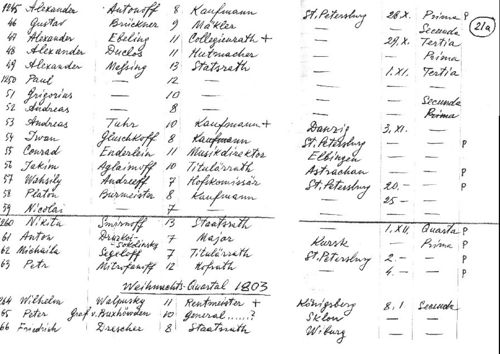 21a
1245 Alexander Antonoff 8 Kaufmann St. Petersburg 28.X. Prima P
46 Gustav Brückner 9 Mäkler — — Secunda
47 Alexander Ebeling 11 Collegienrath + — 29.X. Tertia
48 Alexander Duclos 11 Hutmacher — — Prima
49 Alexander Messing 13 Statsrath — 1.XI. Tertia
1250 Paul — 12 — — — —
51 Grigorius — 10 — — — Secunda
52 Andreas — 8 — — — Prima
53 Andreas Tuhr 10 Kaufmann + Danzig 3.XI. —
54 Iwan Gluschkoff 8 Kaufmann St. Petersburg — — P
55 Conrad Enderlein 11 Musikdirektor Elbingen — —
56 Jakim Aglaimoff 10 Titulärrath Astrachan — — P
57 Wassily Andreeff 7 Hofkomissär St. Petersburg 20. — P
58 Platon Burmeister 8 Kaufmann — 25 —
59 Nicolai — 7 — — — —
1260 Nikita Smirnoff 13 Staatsrath — 1.XII. Quarta P
61 Anton Drutzkoi-Sokolinsky 7 Major Kursk — Prima P
62 Michaila Segeloff 7 Titulärrath St. Petersburg 2. — P
63 Petr Mitrofanoff 12 Hofrath — 4. — P
Weihnachts-Quartal 1803
1264 Wilhelm Walpusky 11 Rentmeister + Königsberg 8.I Secunda
65 Peter Graf v. Buxhöwden 10 General......? Sklow — —
66 Friedrich Drescher 8 Staatsrath Wiburg — —